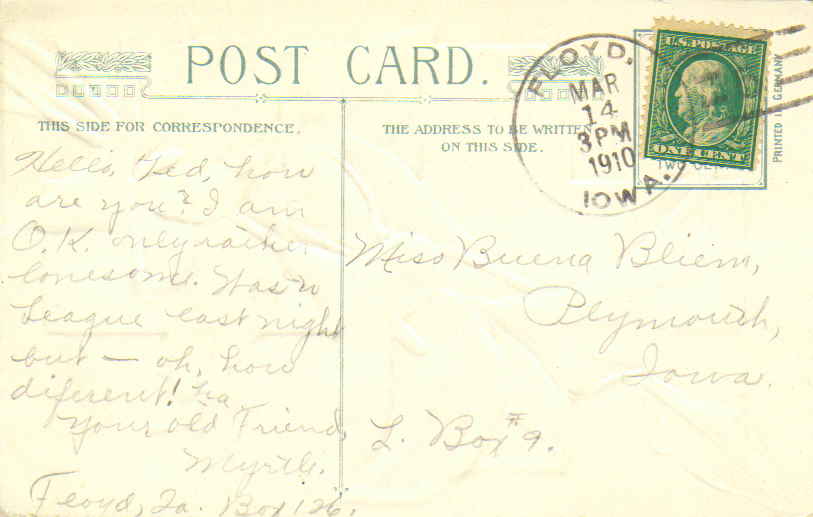 POST CARD.
THIS SIDE FOR CORRESPONDENCE.
THE ADDRESS TO BE WRITTEN
ON THIS SIDE.
FLOYD.
MAR
14
3 PM
1910
IOWA.
U.S. POSTAGE
ONE CENT
TWO CE
PRINTED IN GERMANY
Hello, Ted, how
are you? I am
O.K. only rather
lonesome. Was to
League last night
but — oh, how
diferent! ha
Your old Friend,
Myrtle.
Floyd, Ia. Box 126.
Miss Buena Bliem,
Plymouth,
Iowa.
L. Box #9.